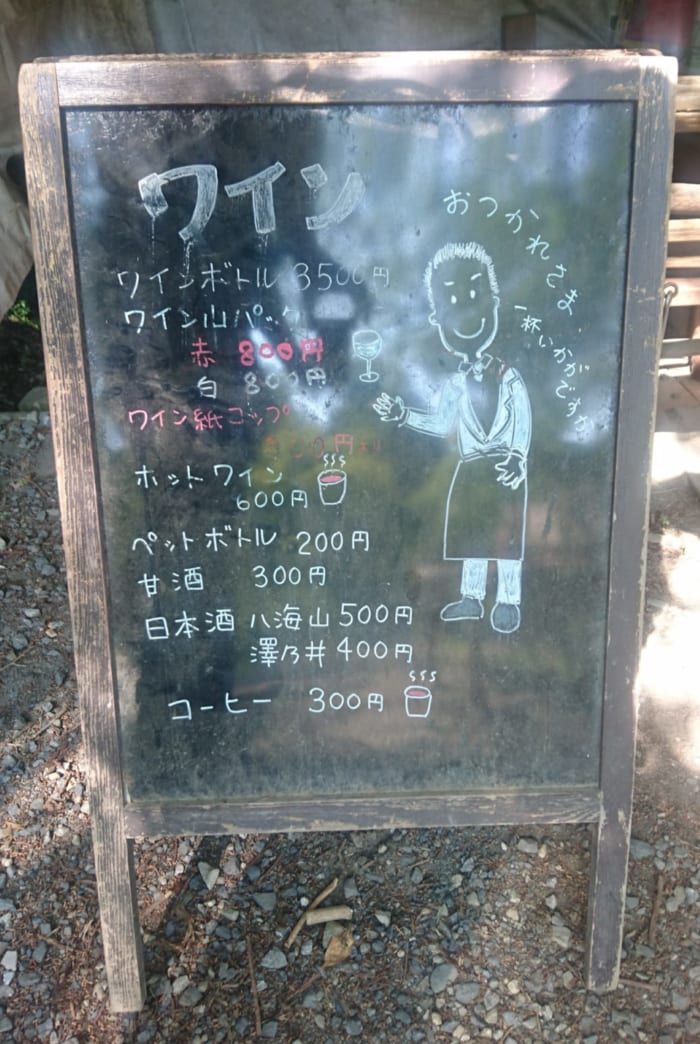 ワイン
ワインボトル 3500円
ワイン山パック
赤 800円
白 800円
ワイン紙コップ
500円
ホットワイン
600円
ペットボトル 200円
甘酒 300円
日本酒 八海山 500円
澤乃井 400円
コーヒー 300円
おつかれさま
一杯いかがですか